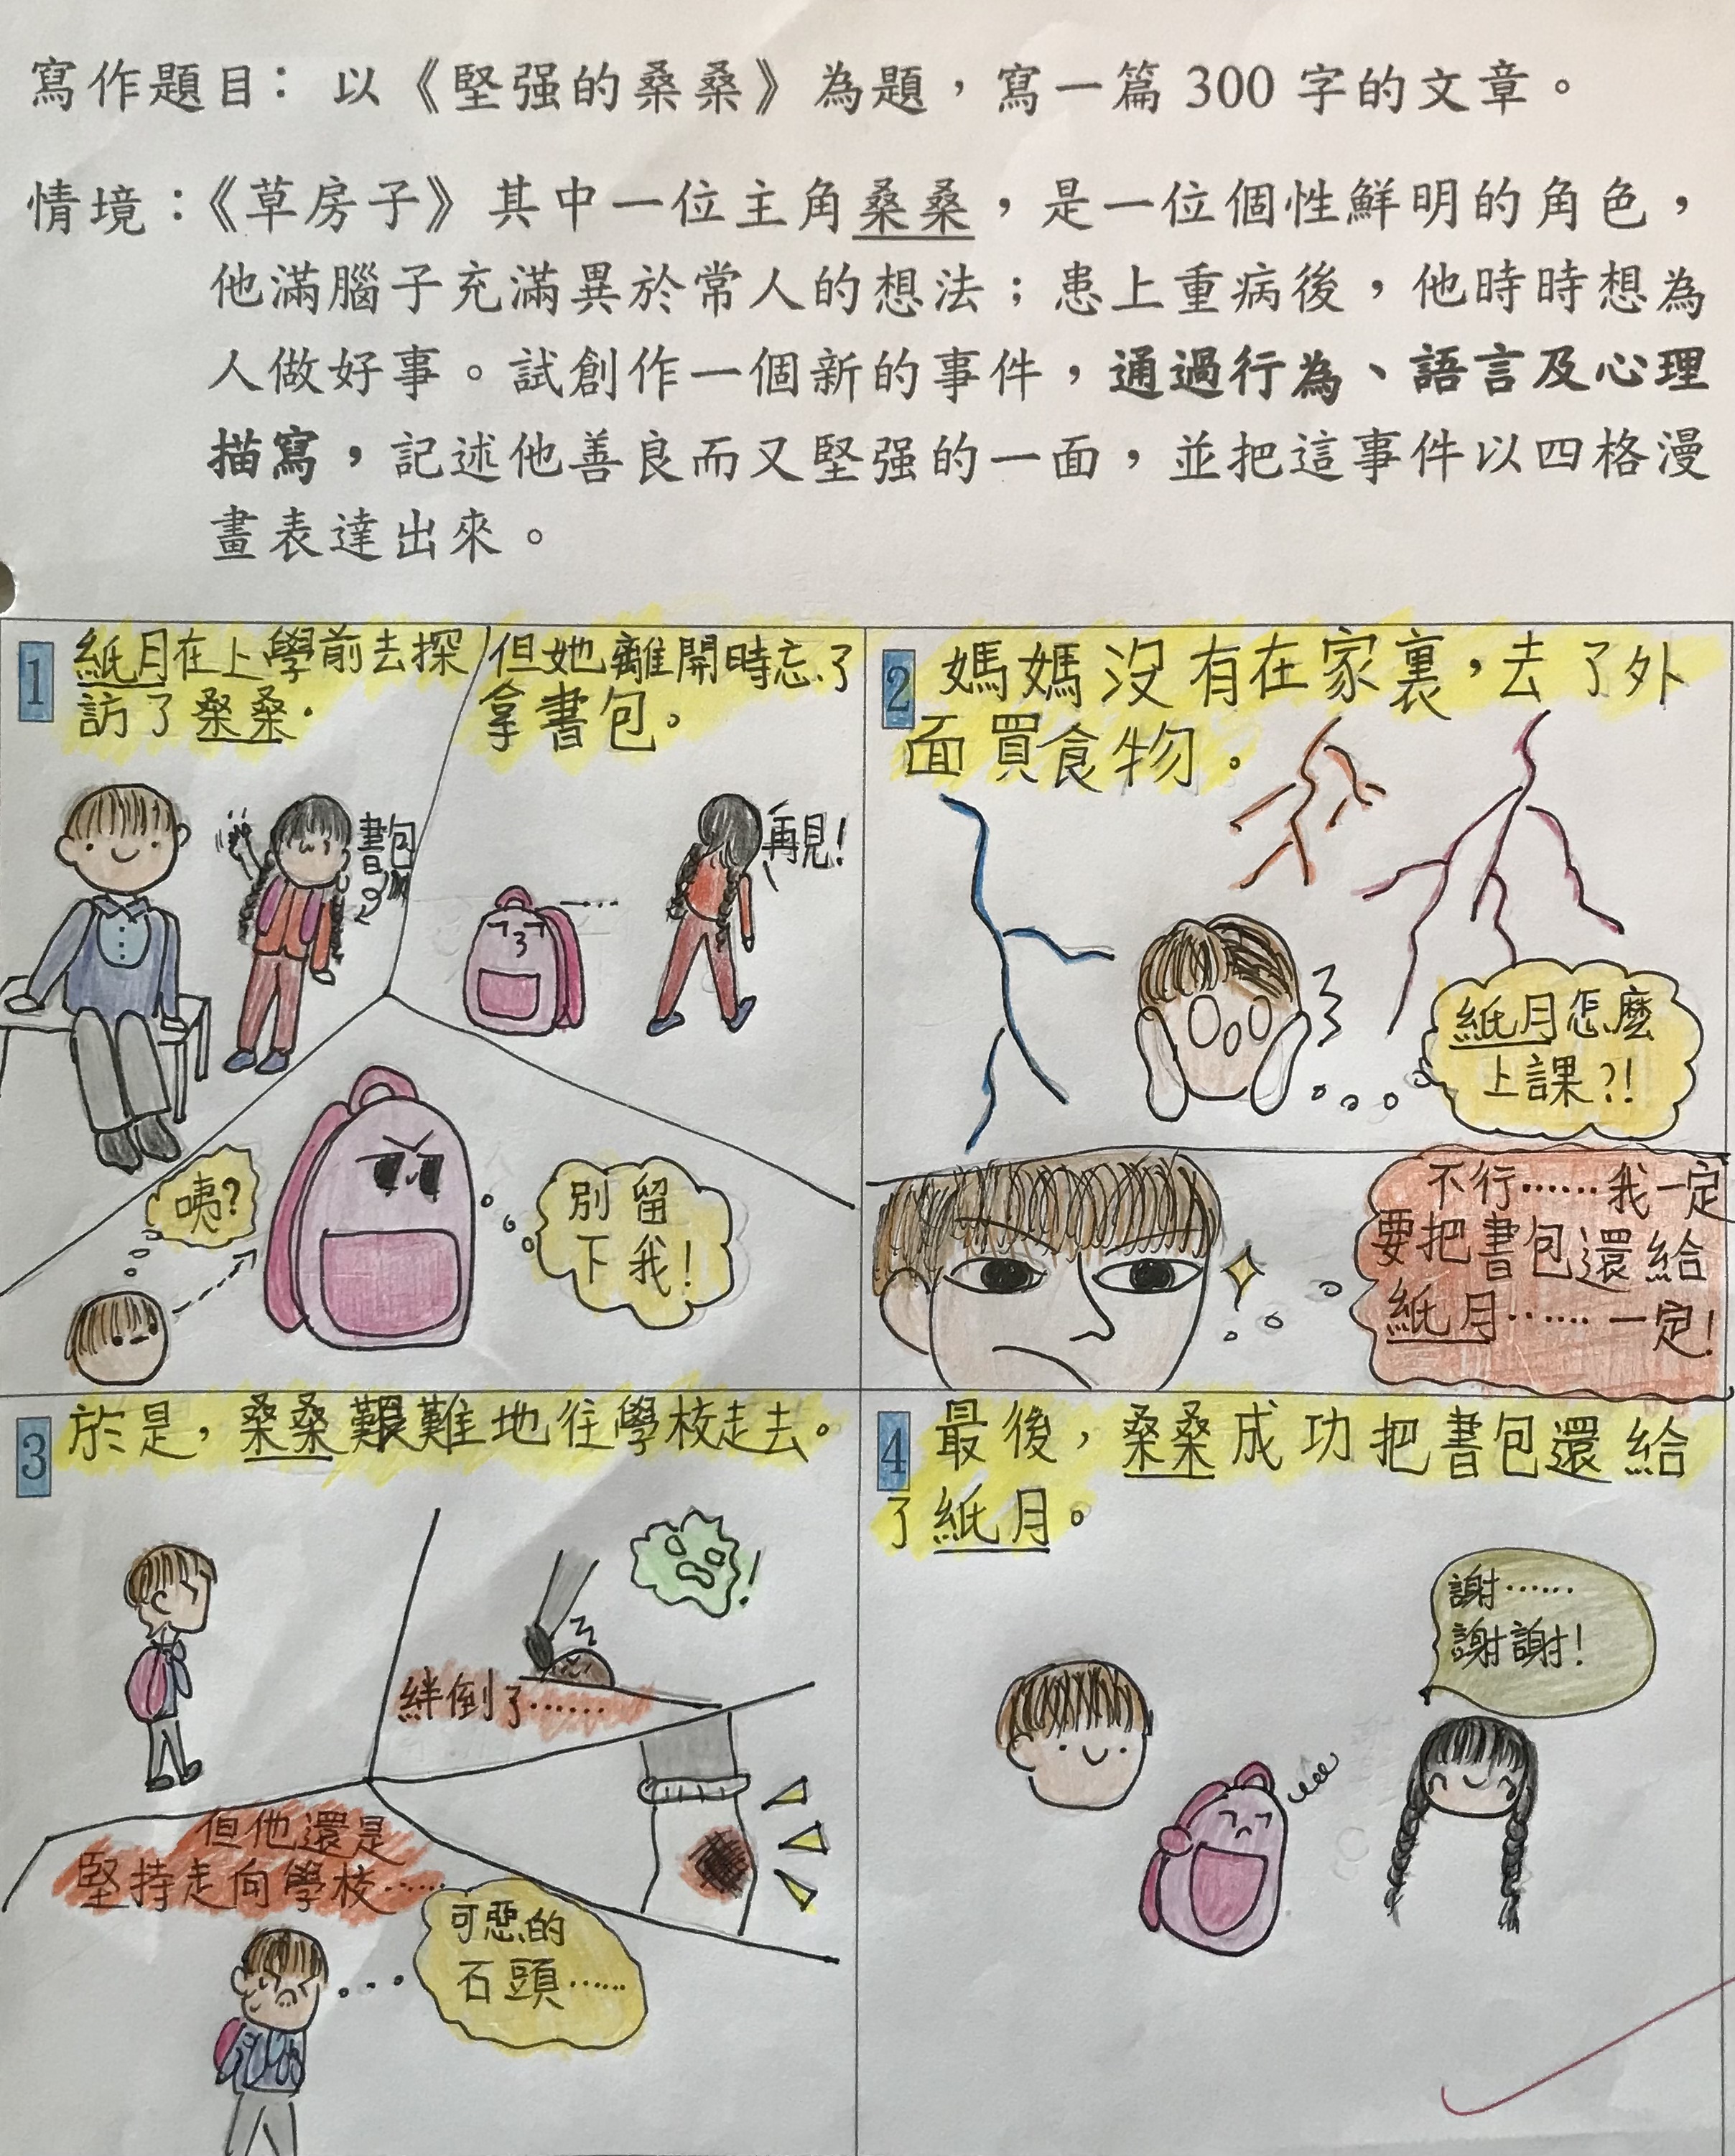 寫作題目： 以《堅强的桑桑》為題，寫一篇 300 字的文章。
情境：《草房子》其中一位主角桑桑，是一位個性鮮明的角色，
他滿腦子充滿異於常人的想法；患上重病後，他時時想為
人做好事。試創作一個新的事件，通過行為、語言及心理
描寫，記述他善良而又堅强的一面，並把這事件以四格漫
畫表達出來。
1
紙月在上學前去探
訪了桑桑.
書包
但她離開時忘了
拿書包。
再見!
咦?
別留
下我!
2
媽媽沒有在家裏，去了外
面買食物。
紙月怎麼
上課?!
不行……我一定
要把書包還給
紙月……一定!
3
於是，桑桑艱難地往學校走去。
絆倒了……
!
但他還是
堅持走向學校……
可惡的
石頭……
4
最後，桑桑成功把書包還給
了紙月。
謝……
謝謝!